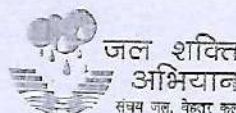 जल शक्ति
अभियान
संचय जल, बेहतर कल